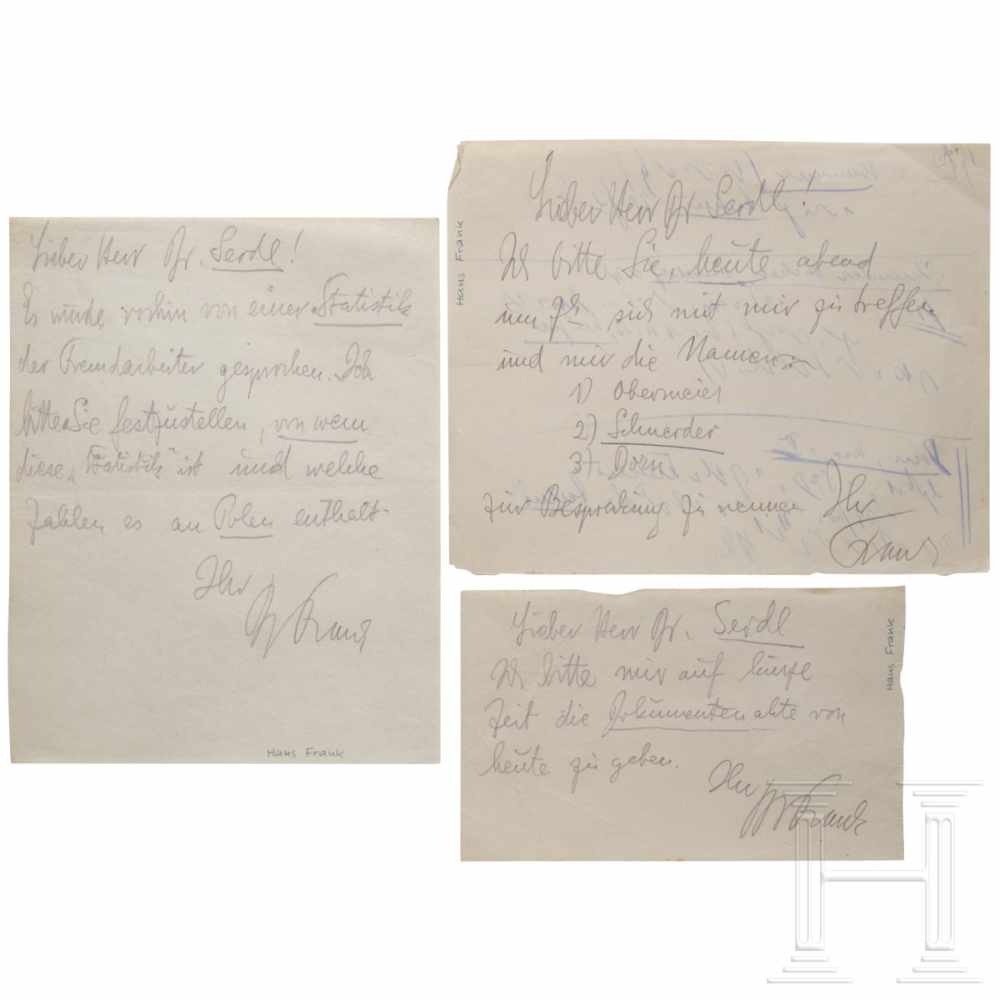 Lieber Herr Dr. Seidl!
Es wurde vorhin von einer Statistik
der Fremdarbeiter gesprochen. Ich
bitte Sie festzustellen, von wem
diese „Statistik" ist und welche
Zahlen es an Polen enthält.
Ihr
Dr Frank
Hans Frank
Lieber Herr Dr. Seidl!
Ich bitte Sie heute abend
um 7h sich mit mir zu treffen
und mir die Namen:
1) Obermeier
2) Schneider
3) Dorn
zur Besprechung zu nennen Ihr
Frank
Hans Frank
Lieber Herr Dr. Seidl
Ich bitte mir auf kurze
Zeit die Dokumentenakte von
heute zu geben.
Ihr Dr Frank
Hans Frank
H